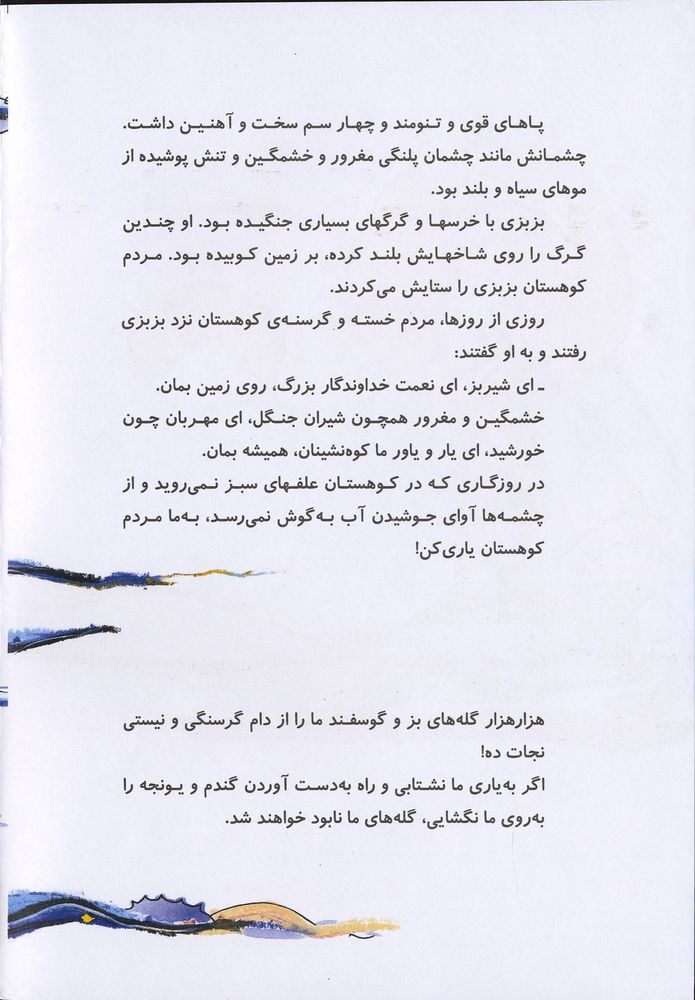 پاهای قوی و تنومند و چهار سم سخت و آهنین داشت.
چشمانش مانند چشمان پلنگی مغرور و خشمگین و تنش پوشیده از
موهای سیاه و بلند بود.
بزبزی با خرسها و گرگهای بسیاری جنگیده بود. او چندین
گرگ را روی شاخهایش بلند کرده، بر زمین کوبیده بود. مردم
کوهستان بزبزی را ستایش می‌کردند.
روزی از روزها، مردم خسته و گرسنه‌ی کوهستان نزد بزبزی
رفتند و به او گفتند:
ـ ای شیربز، ای نعمت خداوندگار بزرگ، روی زمین بمان.
خشمگین و مغرور همچون شیران جنگل، ای مهربان چون
خورشید، ای یار و یاور ما کوه‌نشینان، همیشه بمان.
در روزگاری که در کوهستان علفهای سبز نمی‌روید و از
چشمه‌ها آوای جوشیدن آب به‌گوش نمی‌رسد، به‌ما مردم
کوهستان یاری‌کن!
هزارهزار گله‌های بز و گوسفند ما را از دام گرسنگی و نیستی
نجات ده!
اگر به‌یاری ما نشتابی و راه به‌دست آوردن گندم و یونجه را
به‌روی ما نگشایی، گله‌های ما نابود خواهند شد.